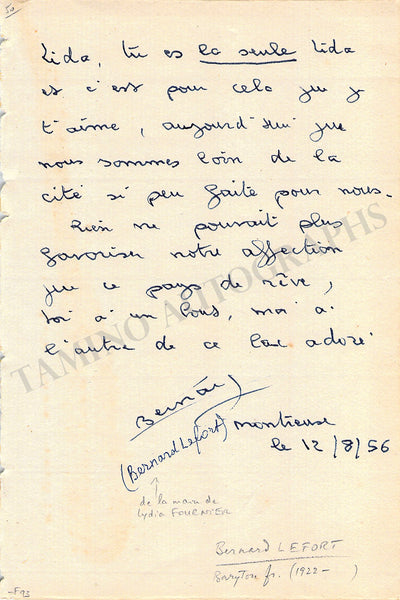 50
Lida, tu es la seule Lida
et c'est pour cela que je
t'aime, aujourd'hui que
nous sommes loin de la
cité si peu faite pour nous.
Rien ne pouvait plus
favoriser notre affection
que ce pays de rêve,
toi à un bout, moi à
l'autre de ce lac adoré
TAMINO AUTOGRAPHS
Bernard
(Bernard Lefort)
Montreux
le 12/8/56
de la main de
Lydia FOURNIER
Bernard LEFORT
Baryton fr. (1922- )
-F93